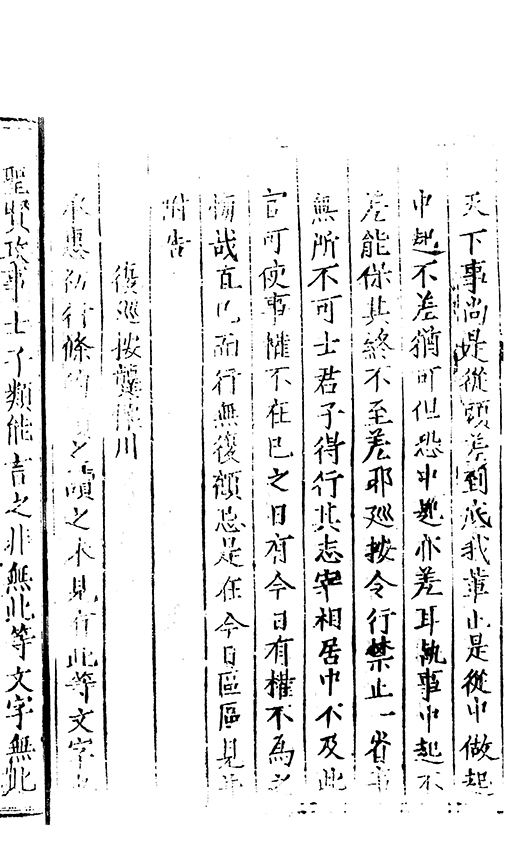 天下事尚是從頭差到底我輩止是從中做起
中起不差猶可但恐中起亦差耳執事中起不
差能保其終不至差耶廵按令行禁止一省事
無所不可士君子得行其志宰相居中不及此
官可使事權不在巳之日有今日有權不為之
悔哉直巳而行無復顧忌是在今日區區見
附告
復廵按龔 川
承惠 行條約 讀之未見有此等文字
聖賢政事士子類能言之非無此等文字無此